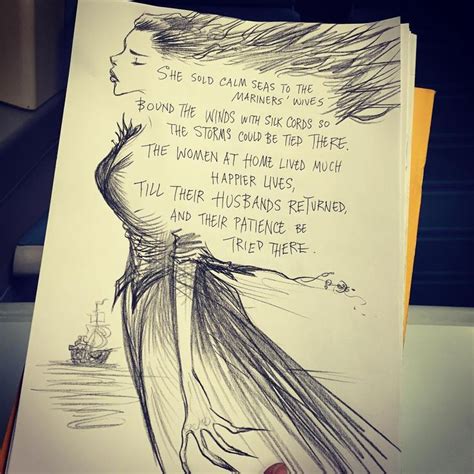 SHE SOLD CALM SEAS TO THE
MARINERS' WIVES
BOUND THE WINDS WITH SILK CORDS SO
THE STORMS COULD BE TIED THERE.
THE WOMEN AT HOME LIVED MUCH
HAPPIER LIVES,
TILL THEIR HUSBANDS RETURNED,
AND THEIR PATIENCE BE
TRIED THERE.